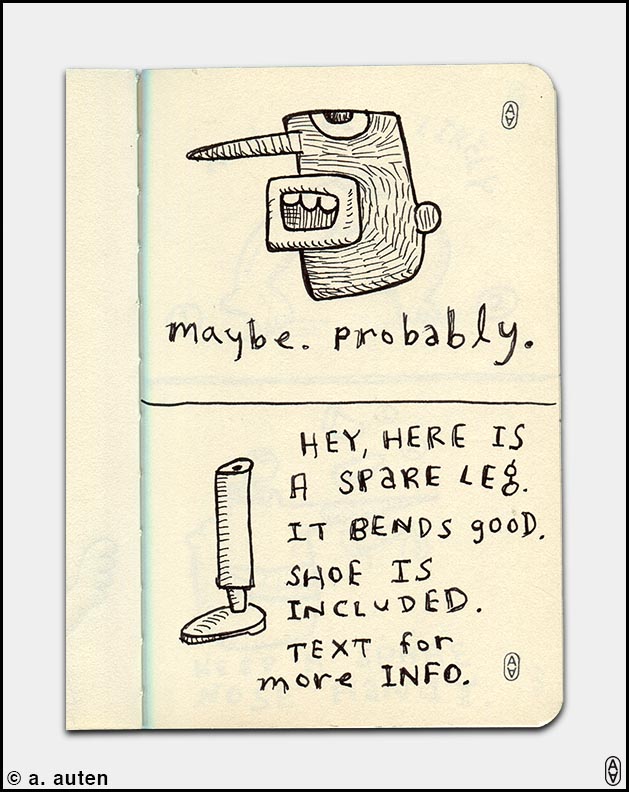 maybe. probably.
HEY, HERE IS
A SPARE LEG.
IT BENDS gOOD.
SHOE IS
INCLUDED.
TEXT for
more INFO.
© a. auten